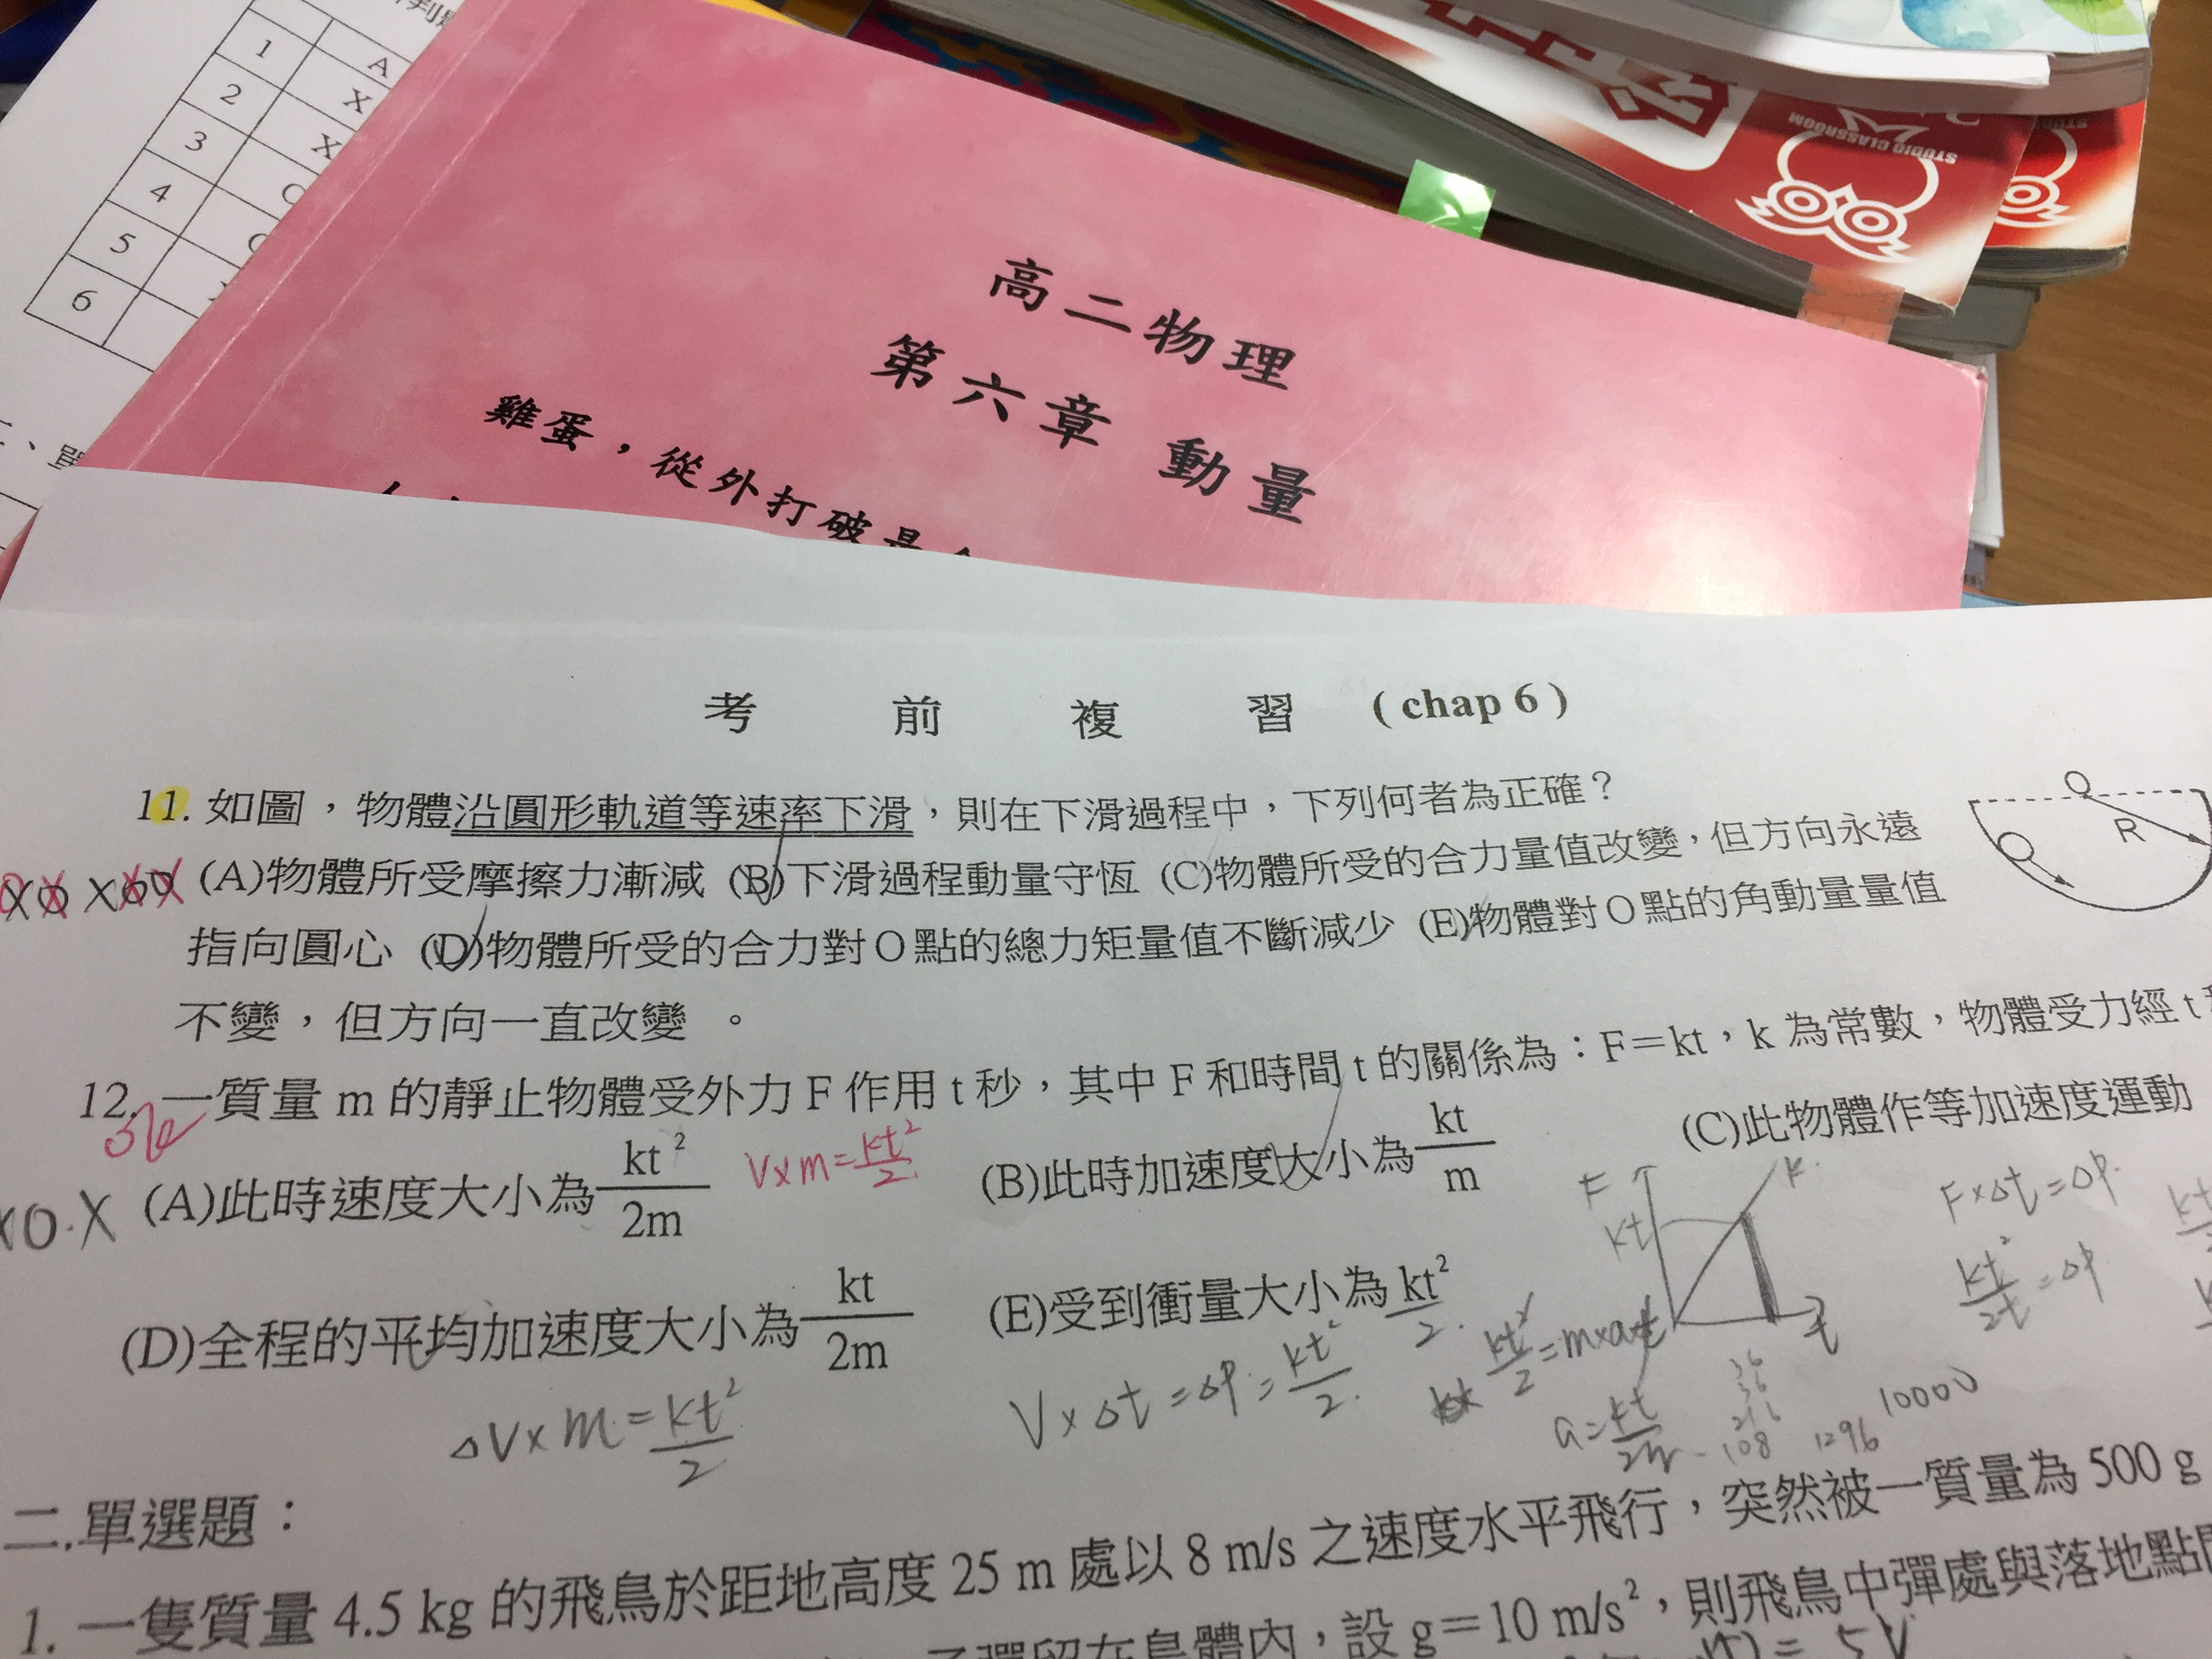 1 A
2 X
3 X
4 O
5
6
STUDIO CLASSROOM
高二物理
第六章 動量
雞蛋，從外打破是
考前複習 ( chap 6 )
11. 如圖，物體沿圓形軌道等速率下滑，則在下滑過程中，下列何者為正確？
(A)物體所受摩擦力漸減 (B)下滑過程動量守恆 (C)物體所受的合力量值改變，但方向永遠
指向圓心 (D)物體所受的合力對O點的總力矩量值不斷減少 (E)物體對O點的角動量量值
不變，但方向一直改變 。
O
R
12. 一質量 m 的靜止物體受外力 F 作用 t 秒，其中 F 和時間 t 的關係為：F＝kt，k 為常數，物體受力經 t
(A)此時速度大小為 kt²/2m V×m=kt²/2 (B)此時加速度大小為 kt/m (C)此物體作等加速度運動
XO.X
F
kt
k
t
F×Δt=ΔP
kt²/2t=ΔP
(D)全程的平均加速度大小為 kt/2m (E)受到衝量大小為 kt²/2.
ΔV×m=kt²/2
V×Δt=ΔP=kt²/2.
kt²/2=m×a×t
a=kt/2m
36
36
216
108 1296 10000
二.單選題：
1. 一隻質量 4.5 kg 的飛鳥於距地高度 25 m 處以 8 m/s 之速度水平飛行，突然被一質量為 500 g
留在鳥體內，設 g＝10 m/s²，則飛鳥中彈處與落地點
= 5V